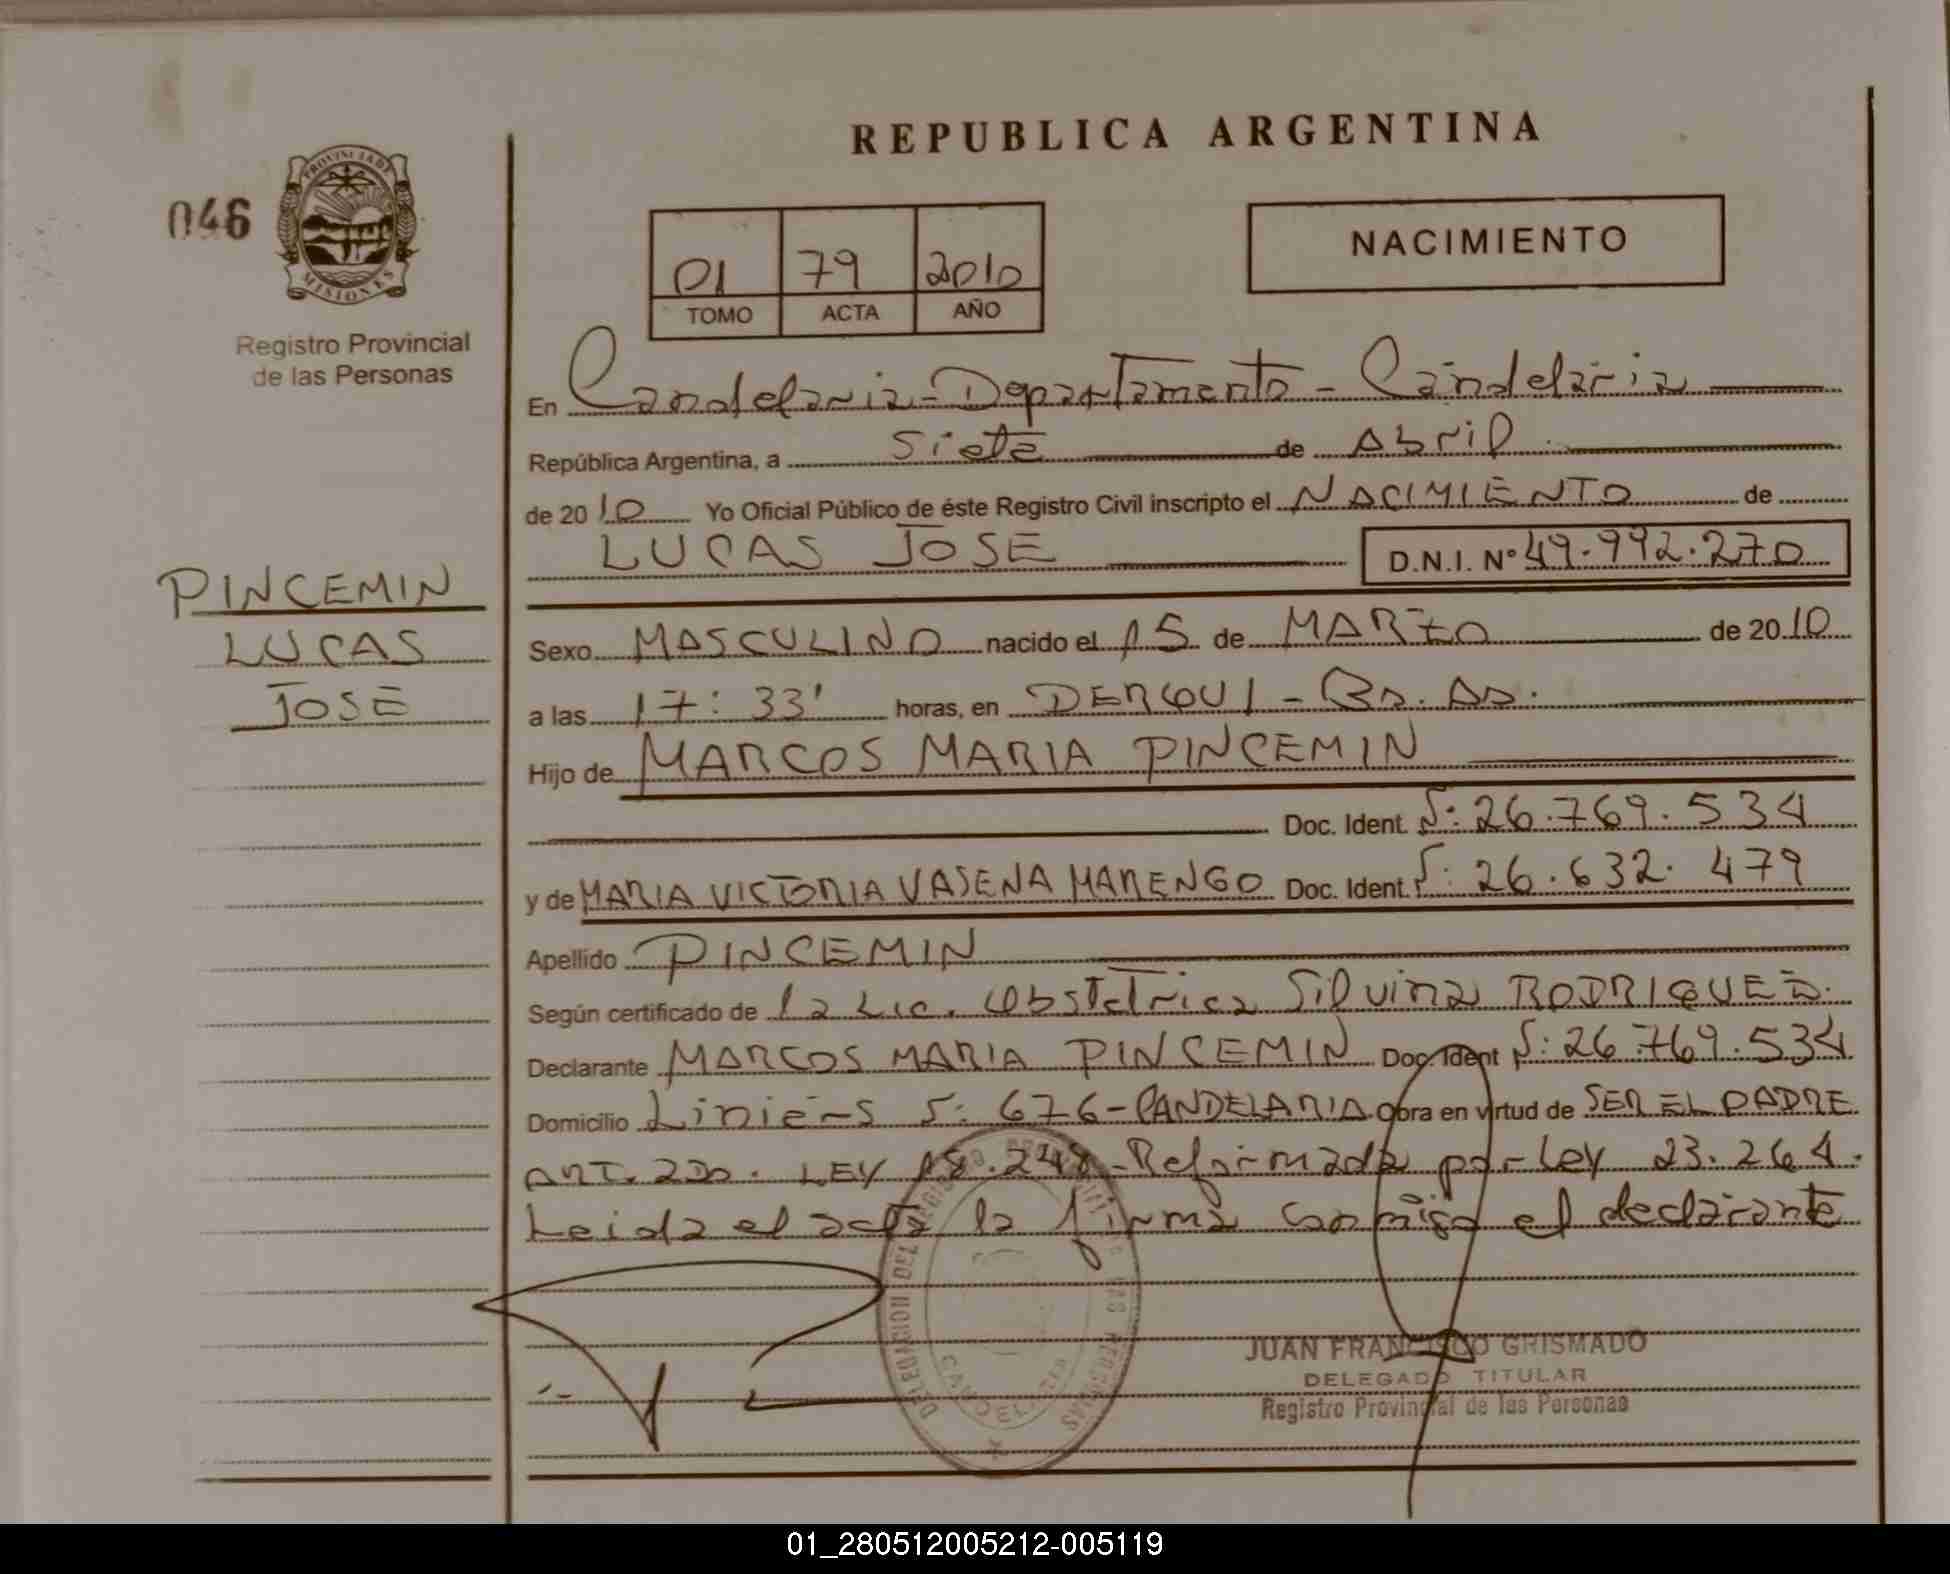 REPUBLICA ARGENTINA
046
PROVINCIA DE
MISIONES
Registro Provincial
de las Personas
NACIMIENTO
01 79 2010
TOMO ACTA AÑO
En Candelaria - Departamento - Candelaria
República Argentina, a siete de Abril
de 2010 Yo Oficial Público de éste Registro Civil inscripto el NACIMIENTO de
LUCAS JOSE D.N.I. Nº 49.992.270
PINCEMIN
LUCAS
JOSE
Sexo MASCULINO nacido el 15 de MARZO de 2010
a las 17:33' horas, en DERQUI - Bs. As.
Hijo de MARCOS MARIA PINCEMIN
Doc. Ident. Nº: 26.769.534
y de MARIA VICTORIA VASENA MARENGO Doc. Ident. Nº: 26.632.479
Apellido PINCEMIN
Según certificado de la Lic. Obstetrica Silvina RODRIGUEZ.
Declarante MARCOS MARIA PINCEMIN Doc. Ident Nº: 26.769.534
Domicilio Liniers Nº: 676 - CANDELARIA Obra en virtud de SER EL PADRE
ART. 2DO. LEY 18.248 - Reformada por Ley 23.264.
Leida el acta la firma conmigo el declarante
DELEGACION DEL REGISTRO PROVINCIAL DE LAS PERSONAS
CANDELARIA
JUAN FRANCISCO GRISMADO
DELEGADO TITULAR
Registro Provincial de las Personas
01_280512005212-005119